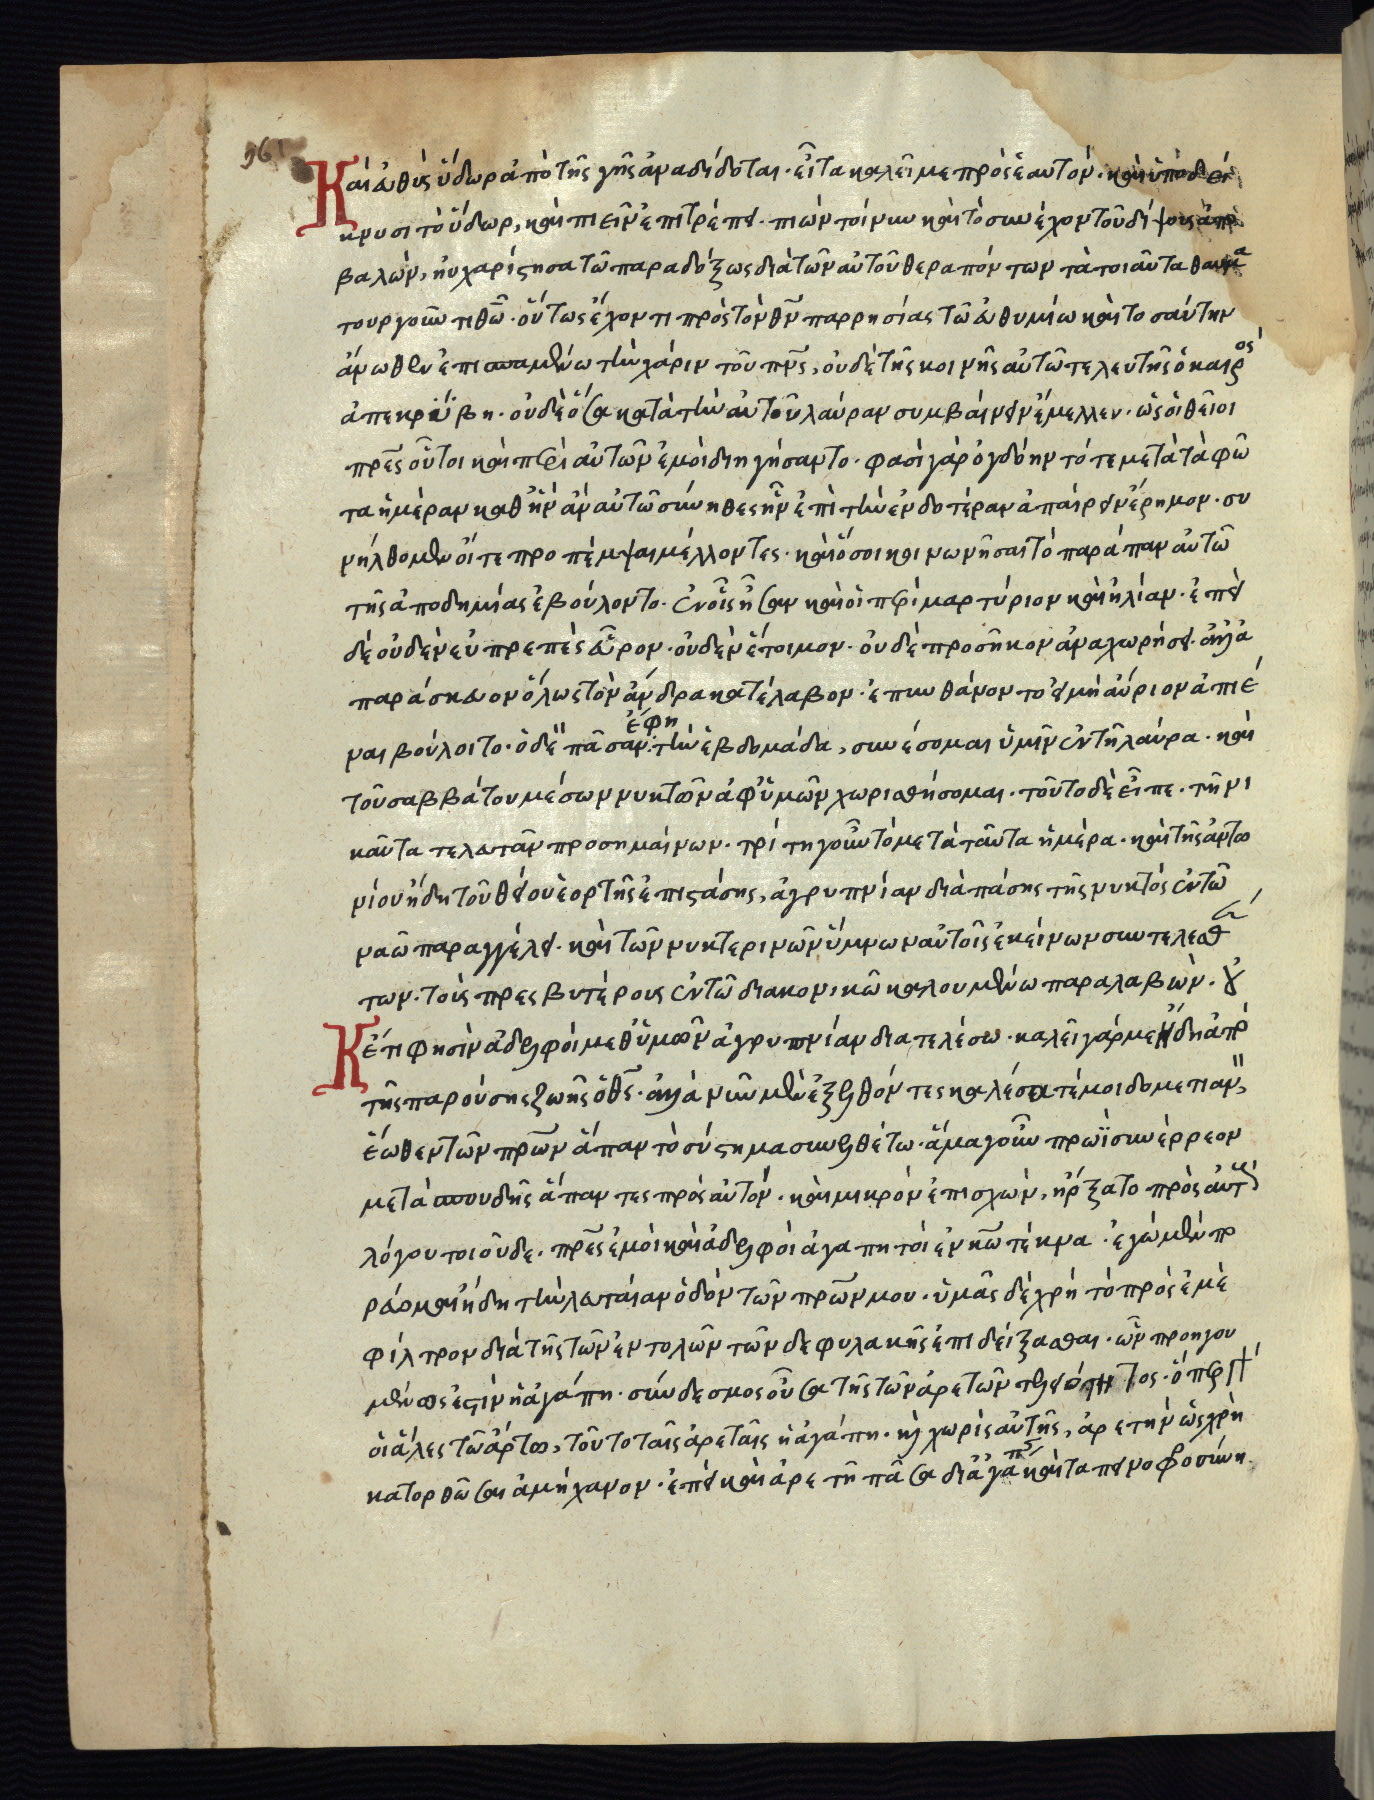 961
Καὶ εὐθὺς ὕδωρ ἀπὸ τῆς γῆς ἀναδίδοται· εἶτα καλεῖ με πρὸς ἑαυτόν· καὶ ὑποδεί
κνυσι τὸ ὕδωρ, καὶ πιεῖν ἐπιτρέπει· πιὼν τοίνυν καὶ τὸ συνέχον τοῦ δίψους ἀπο
βαλών, ηὐχαρίστησα τῶ παραδόξως διὰ τῶν αὐτοῦ θεραπόντων τὰ τοιαῦτα θαυμα
τουργοῦντι θῶ· οὕτως ἔχοντι πρὸς τὸν θν παρρησίας τῶ εὐθυμίω καὶ τοσαύτην
ἄνωθεν ἐπισπαμένω τὴν χάριν τοῦ πνς, οὐδὲ τῆς κοινῆς αὐτῶ τελευτῆς ὁ καιρὸς
ἀπεκρύβη· οὐδὲ ὅσα κατὰ τὴν αὐτοῦ λαύραν συμβαίνειν ἔμελλεν· ὡς οἱ θεῖοι
πρες οὗτοι καὶ περὶ αὐτῶν ἐμοὶ διηγήσαντο· φασὶ γὰρ ὀγδόην τότε μετὰ τὰ φῶ
τα ἡμέραν καθ ἣν ἂν αὐτῶ σύνηθες ἦν ἐπὶ τὴν ἐνδοτέραν ἀπαίρειν ἔρημον· συ
νήλθομεν οἵ τε προπέμψαι μέλλοντες· καὶ ὅσοι κοινωνῆσαι τὸ παράπαν αὐτῶ
τῆς ἀποδημίας ἐβούλοντο· ἐν οἷς ἦσαν καὶ οἱ περὶ μαρτύριον καὶ ἠλίαν· ἐπεὶ
δὲ οὐδὲν εὐπρεπὲς εὗρον· οὐδὲν ἕτοιμον· οὐδὲ προσῆκον ἀναχωρήσει· ἀλλὰ
παράσκευον ὅλως τὸν ἄνδρα κατέλαβον· ἐπυνθάνοντο εἰ μὴ αὔριον ἀπιέ
ναι βούλοιτο· ὁ δὲ πᾶσαν ἔφη τὴν ἑβδομάδα, συνέσομαι ὑμῖν ἐν τῆ λαύρα· καὶ
τοῦ σαββάτου μέσων νυκτῶν ἀφ ὑμῶν χωρισθήσομαι· τοῦτο δὲ εἶπε· τηνι
καῦτα τελευτᾶν προσημαίνων· τρίτη γοῦν τὸ μετὰ ταῦτα ἡμέρα· καὶ τῆς ἀντω
νίου ἤδη τοῦ θείου ἑορτῆς ἐπιστάσης, ἀγρυπνίαν διὰ πάσης τῆς νυκτὸς ἐν τῶ
ναῶ παραγγέλει· καὶ τῶν νυκτερινῶν ὕμνων αὐτοῖς ἐκείνων συντελεσθέν
των· τοὺς πρεσβυτέρους ἐν τῶ διακονικῶ καλουμένω παραλαβών· οὐ
Κέτι φησὶν ἀδελφοί μεθ ὑμῶν ἀγρυπνίαν διατελέσω· καλεῖ γάρ με ἤδη ἀπὸ
τῆς παρούσης ζωῆς ὁ θς· ἀλλὰ νῦν μὲν ἐξελθόντες καλέσατέ μοι δομετιαν,
ἕωθεν τῶν πρων ἅπαν τὸ σύστημα συνελθέτω· ἅμα γοῦν πρωῒ συνέρρεον
μετὰ σπουδῆς ἅπαντες πρὸς αὐτόν· καὶ μικρὸν ἐπισχών, ἤρξατο πρὸς αὐτοὺς
λόγου τοιοῦδε· πρες ἐμοὶ καὶ ἀδελφοὶ ἀγαπητοὶ ἐν κω τέκνα· ἐγὼ μὲν πο
ρεύομαι ἤδη τὴν λευταίαν ὁδὸν τῶν πρων μου· ὑμᾶς δὲ χρὴ τὸ πρὸς ἐμὲ
φίλτρον διὰ τῆς τῶν ἐντολῶν τῶνδε φυλακῆς ἐπιδείξασθαι· ὧν προηγου
μένως ἐστὶν ἡ ἀγάπη· σύνδεσμος οὖσα τῆς τῶν ἀρετῶν τελειότητος· ὅπερ γὰρ
οἱ ἅλες τῶ ἄρτω, τοῦτο ταῖς ἀρεταῖς ἡ ἀγάπη· καὶ χωρὶς αὐτῆς, ἀρετὴν ὡς χρὴ
κατορθῶσαι ἀμήχανον· ἐπεὶ καὶ ἀρετὴ πᾶσα δι ἀγάπης καὶ ταπεινοφροσύνη